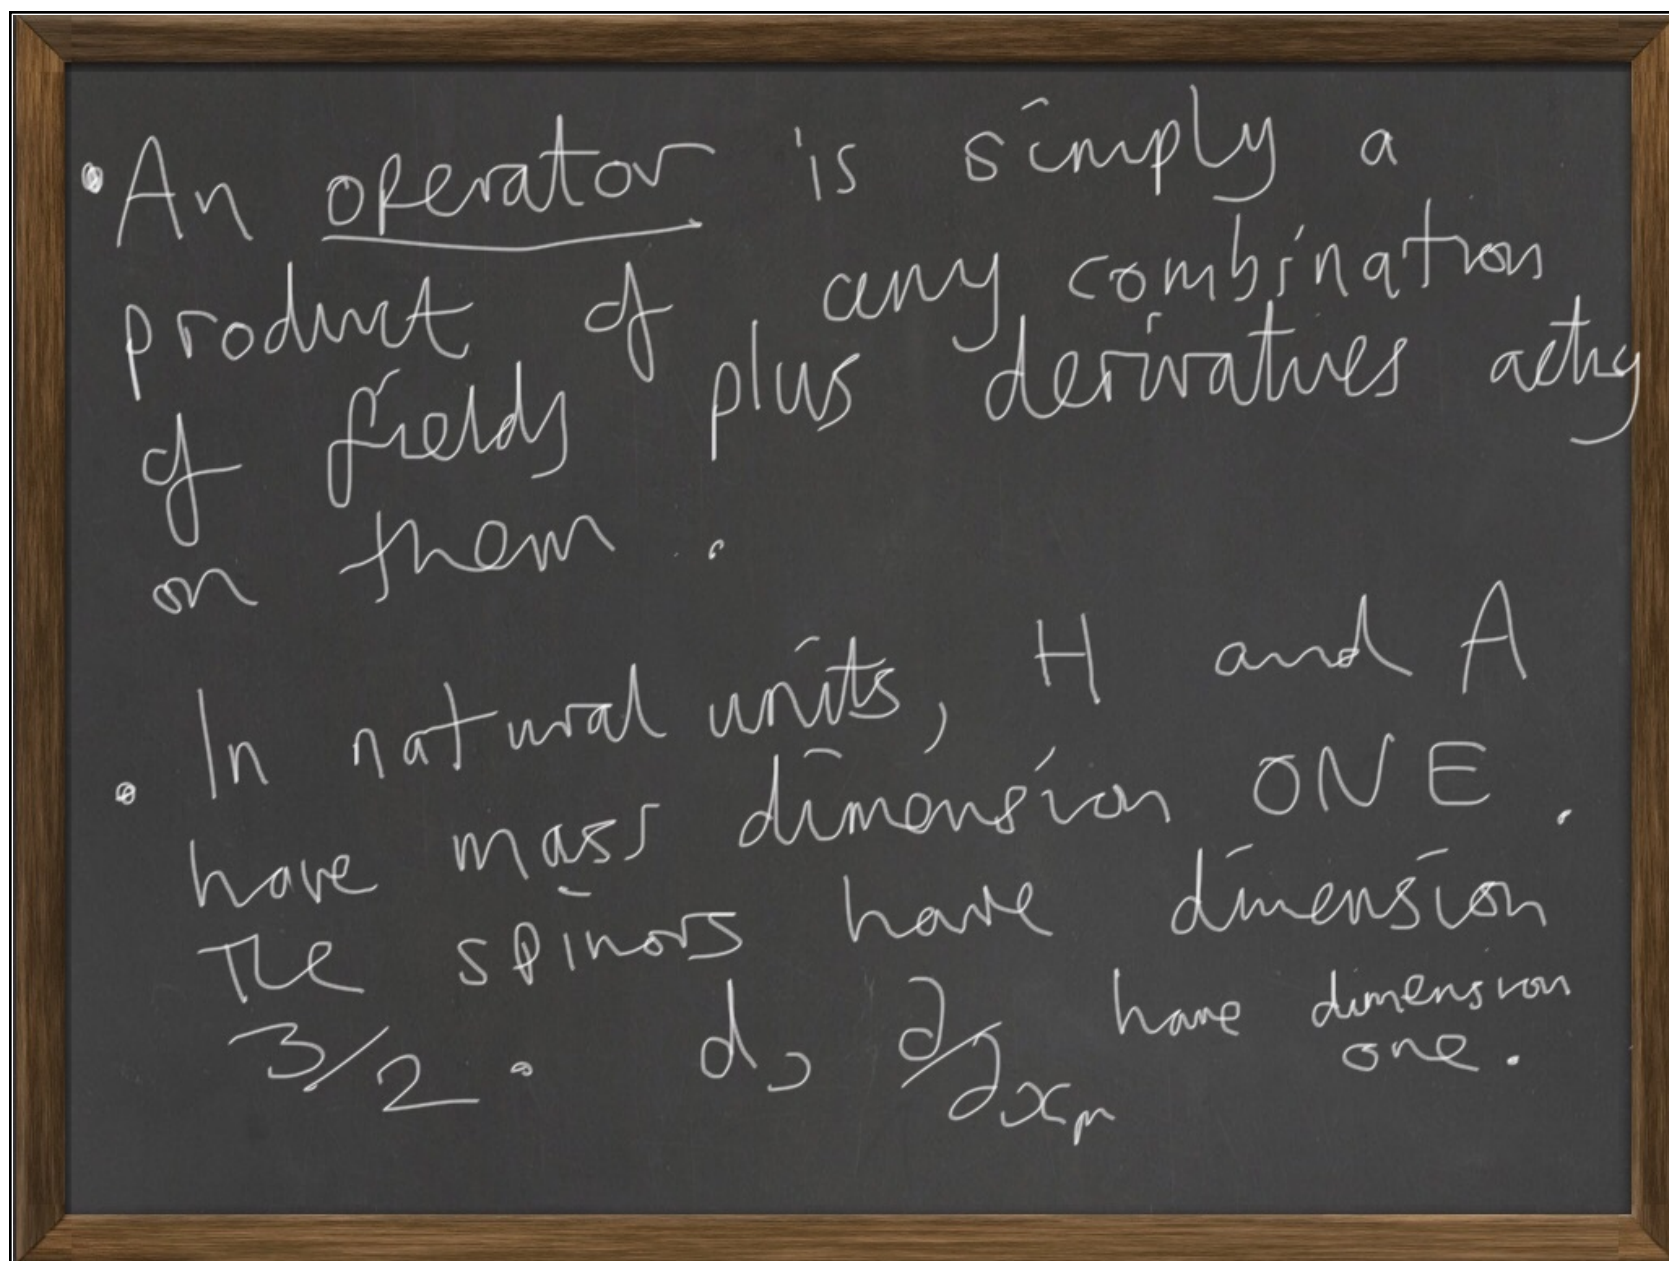 • An operator is simply a
product of any combination
of fields plus derivatives acting
on them.
• In natural units, H and A
have mass dimension ONE.
The spinors have dimension
3/2. d, ∂/∂xμ have dimension
one.